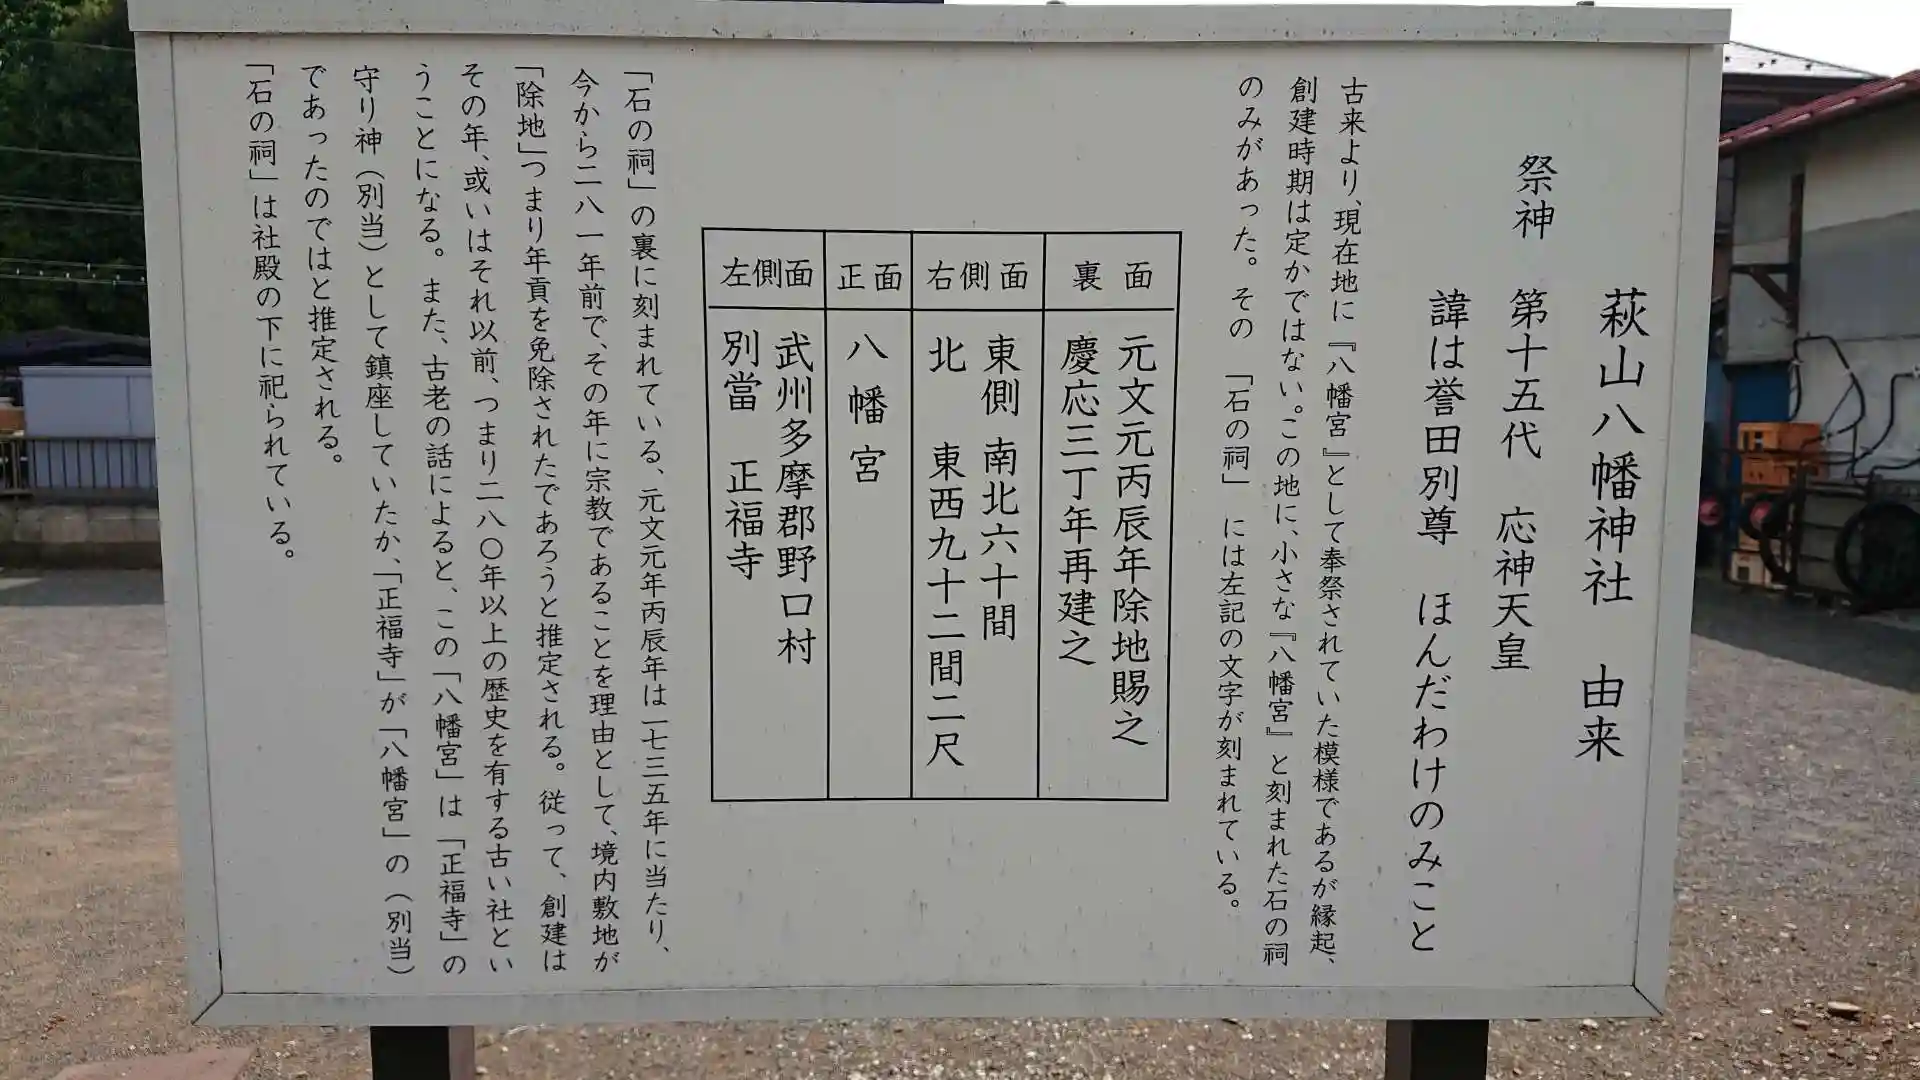 萩山八幡神社　由来
祭神　第十五代　応神天皇
諱は誉田別尊　ほんだわけのみこと
古来より、現在地に『八幡宮』として奉祭されていた模様であるが縁起、
創建時期は定かではない。この地に、小さな『八幡宮』と刻まれた石の祠
のみがあった。その「石の祠」には左記の文字が刻まれている。
裏面
元文元丙辰年除地賜之
慶応三丁年再建之
右側面
東側　南北六十間
北　東西九十二間二尺
正面
八幡宮
左側面
武州多摩郡野口村
別當　正福寺
「石の祠」の裏に刻まれている、元文元年丙辰年は一七三五年に当たり、
今から二八一年前で、その年に宗教であることを理由として、境内敷地が
「除地」つまり年貢を免除されたであろうと推定される。従って、創建は
その年、或いはそれ以前、つまり二八〇年以上の歴史を有する古い社とい
うことになる。また、古老の話によると、この「八幡宮」は「正福寺」の
守り神（別当）として鎮座していたか、「正福寺」が「八幡宮」の（別当）
であったのではと推定される。
「石の祠」は社殿の下に祀られている。